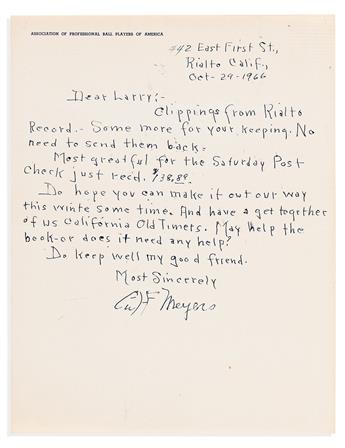 ASSOCIATION OF PROFESSIONAL BALL PLAYERS OF AMERICA
442 East First St.,
Rialto Calif.,
Oct-29-1966
Dear Larry;-
Clippings from Rialto
Record.- Some more for your keeping. No
need to send them back.
Most greatful for the Saturday Post
Check just recd. $138.89.
Do hope you can make it out our way
this winte some time. And have a get togethre
of us California Old Timers. May help the
book-or does it need any help?
Do keep well my good friend.
Most Sincerely
Meyers